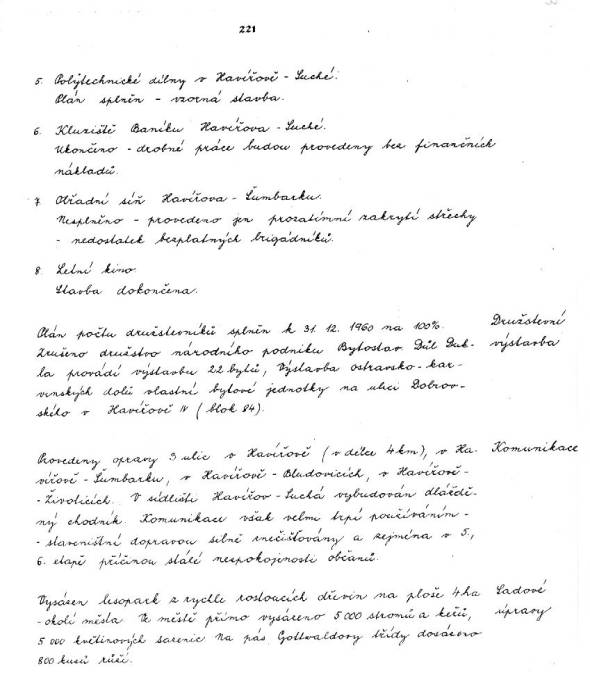 221
5. Polytechnické dílny v Havířově - Suché.
Plán splněn - vzorná stavba.
6. Kluziště Baníku Havířova - Suché.
Ukončeno - drobné práce budou provedeny bez finančních
nákladů.
7. Obřadní síň Havířova - Šumbarku.
Nesplněno - provedeno jen prozatímní zakrytí střechy
- nedostatek bezplatných brigádníků.
8. Letní kino.
Stavba dokončena.
Plán počtu družstevníků splněn k 31. 12. 1960 na 100%. Družstevní
Zrušeno družstvo národního podniku Bytostav Důl Duk- výstavba
la provádí výstavbu 22 bytů, Výstavba ostravsko-kar-
vinských dolů vlastní bytové jednotky na ulici Dobrov-
ského v Havířově IV (blok 84).
Provedeny opravy 3 ulic v Havířově (v délce 4 km), v Ha- Komunikace
vířově - Šumbarku, v Havířově - Bludovicích, v Havířově-
- Životicích. V sídlišti Havířov - Suchá vybudován dlážde-
ný chodník. Komunikace však velmi trpí používáním -
- staveništní dopravou silně znečišťovány a zejména v 5.,
6. etapě příčinou stálé nespokojenosti občanů.
Vysázen lesopark z rychle rostoucích dřevin na ploše 4 ha Sadové
- okolí města. Ve městě přímo vysázeno 5 000 stromů a keřů, úpravy
5 000 květinových sazenic. Na pás Gottwaldovy třídy dosázeno
800 kusů růží.